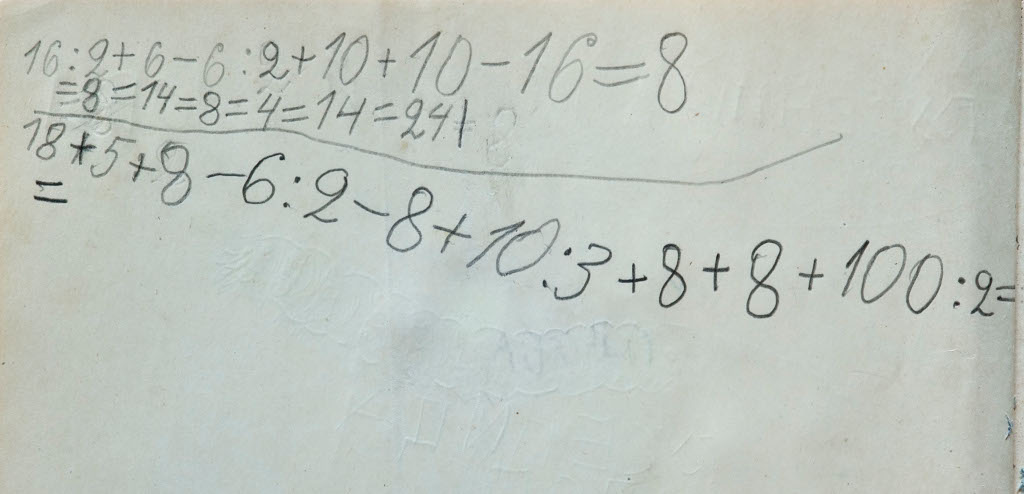 16:2+6-6:2+10+10-16=8
=8=14=8=4=14=24
18+5+8-6:2-8+10:3+8+8+100:2=
=